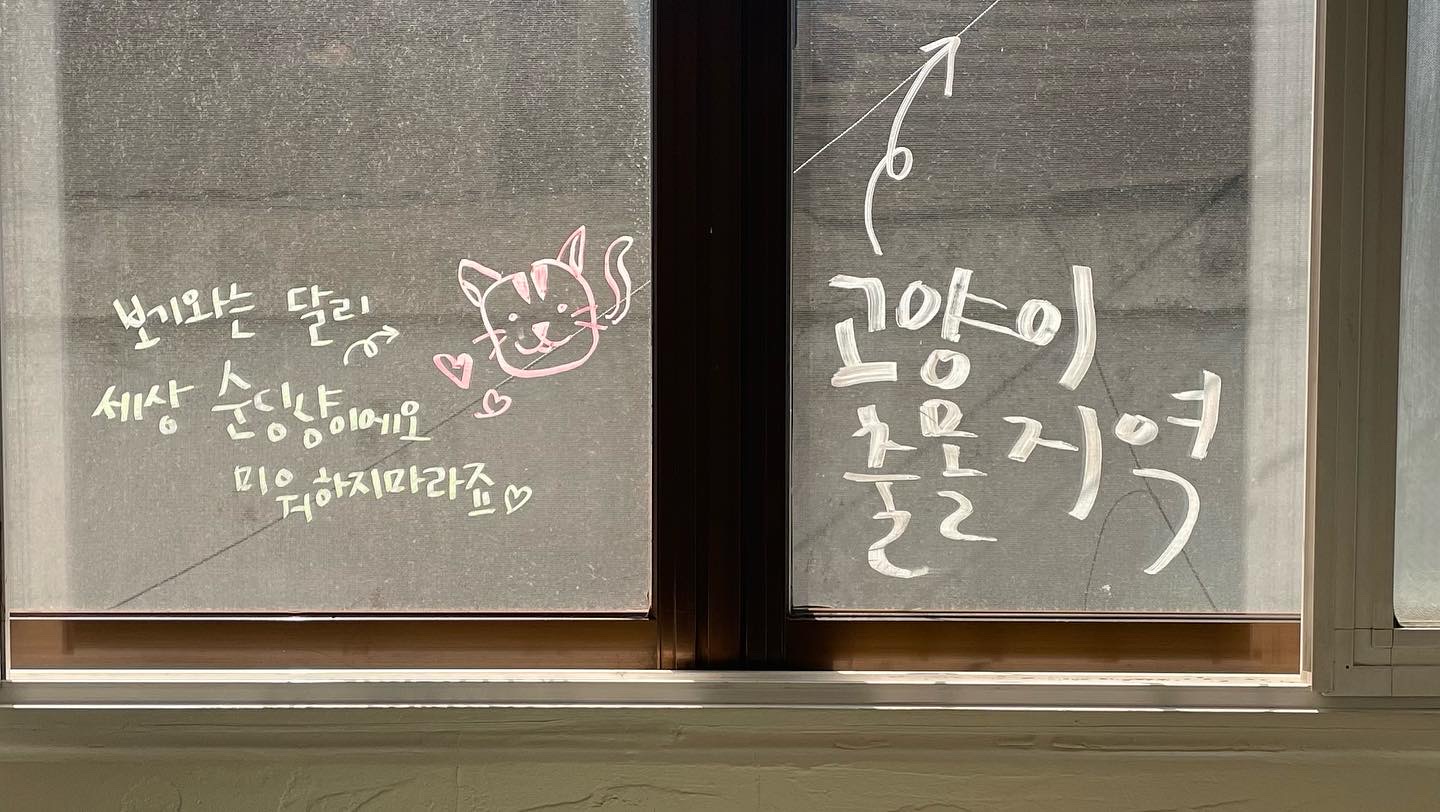 보기와는 달리
세상 순딩냥이에오
미워하지마라죠♡
고양이
출몰지역